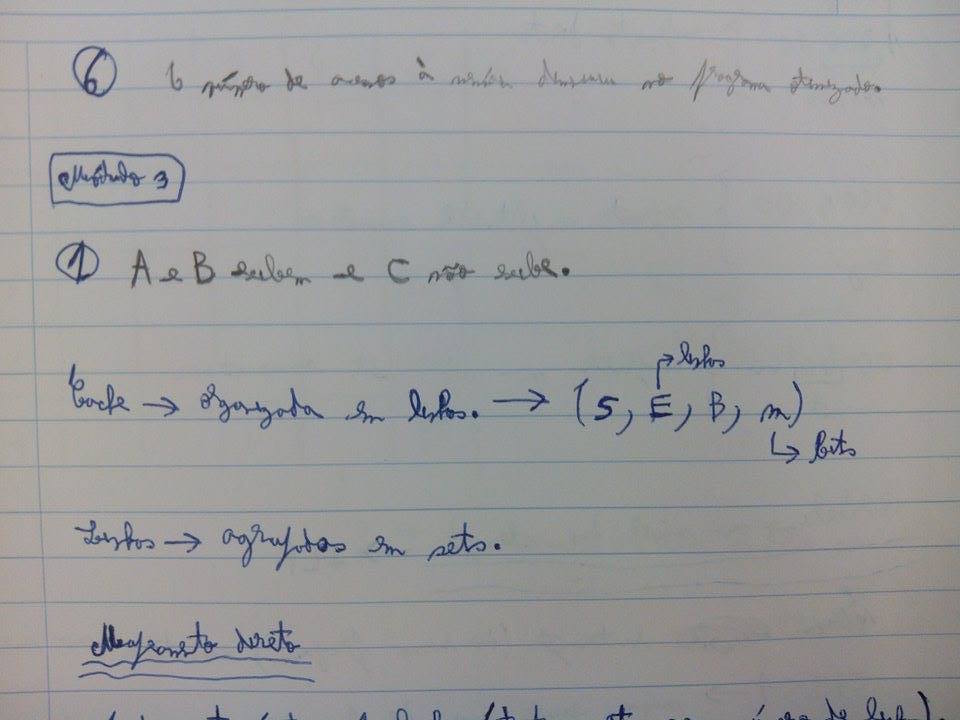 6 O número de acessos à memória diminuiu no programa otimizado.
Módulo 3
1 A e B sabem e C não sabe.
→ linhas
Cache → organizada em linhas. → (S, E, B, m)
↳ bits
Linhas → agrupadas em sets.
Mapeamento direto